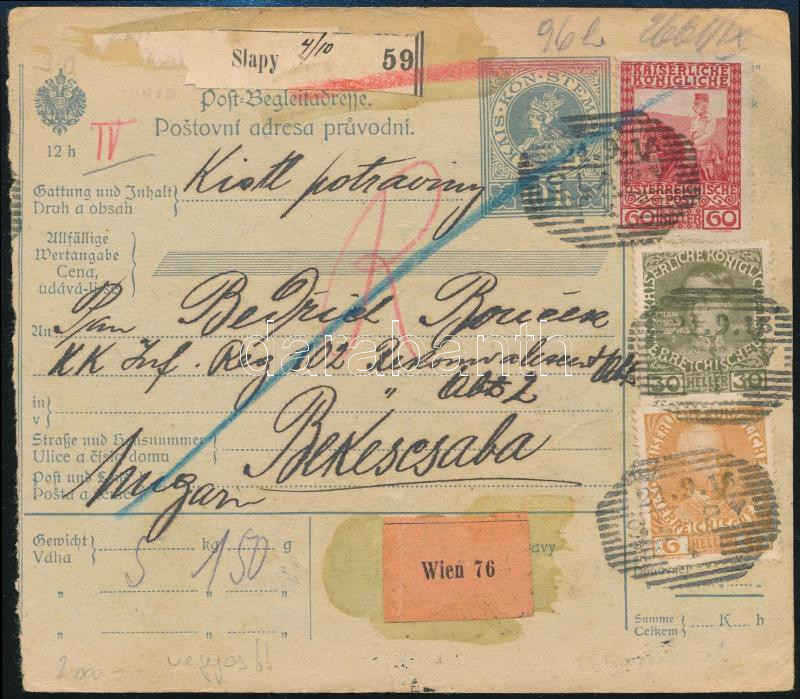 Slapy 4/10 59
96h
Post-Begleitadresse.
Poštovní adresa průvodní.
12 h
IV
KAIS·KON·STEM
KAISERLICHE
KÖNIGLICHE
ÖSTERREICHISCHE
POST
60 HELLER 60
Gattung und Inhalt
Druh a obsah
Kistl potraviny
Allfällige
Wertangabe
Cena,
udává-li se
R
KAISERLICHE KÖNIGLICHE
30 HELLER 30
An
Pan Bedřich Bouček
KK Inf. Reg 102 Rekonvalescent Abt
" Abt 2
in
v
Straße und Hausnummer
Ulice a číslo domu
Bekescsaba
Post und Land
Pošta a země
Ungarn
6 HELLER
Gewicht
Váha
5 kg 150 g
" " "
" " "
Wien 76
Summe
Celkem
K h
darabanth
2000.-